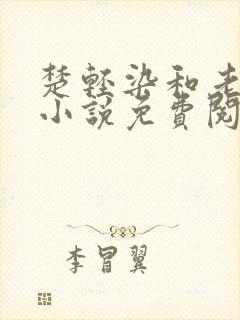 楚轻染和老
小說免費閱
李冒翼